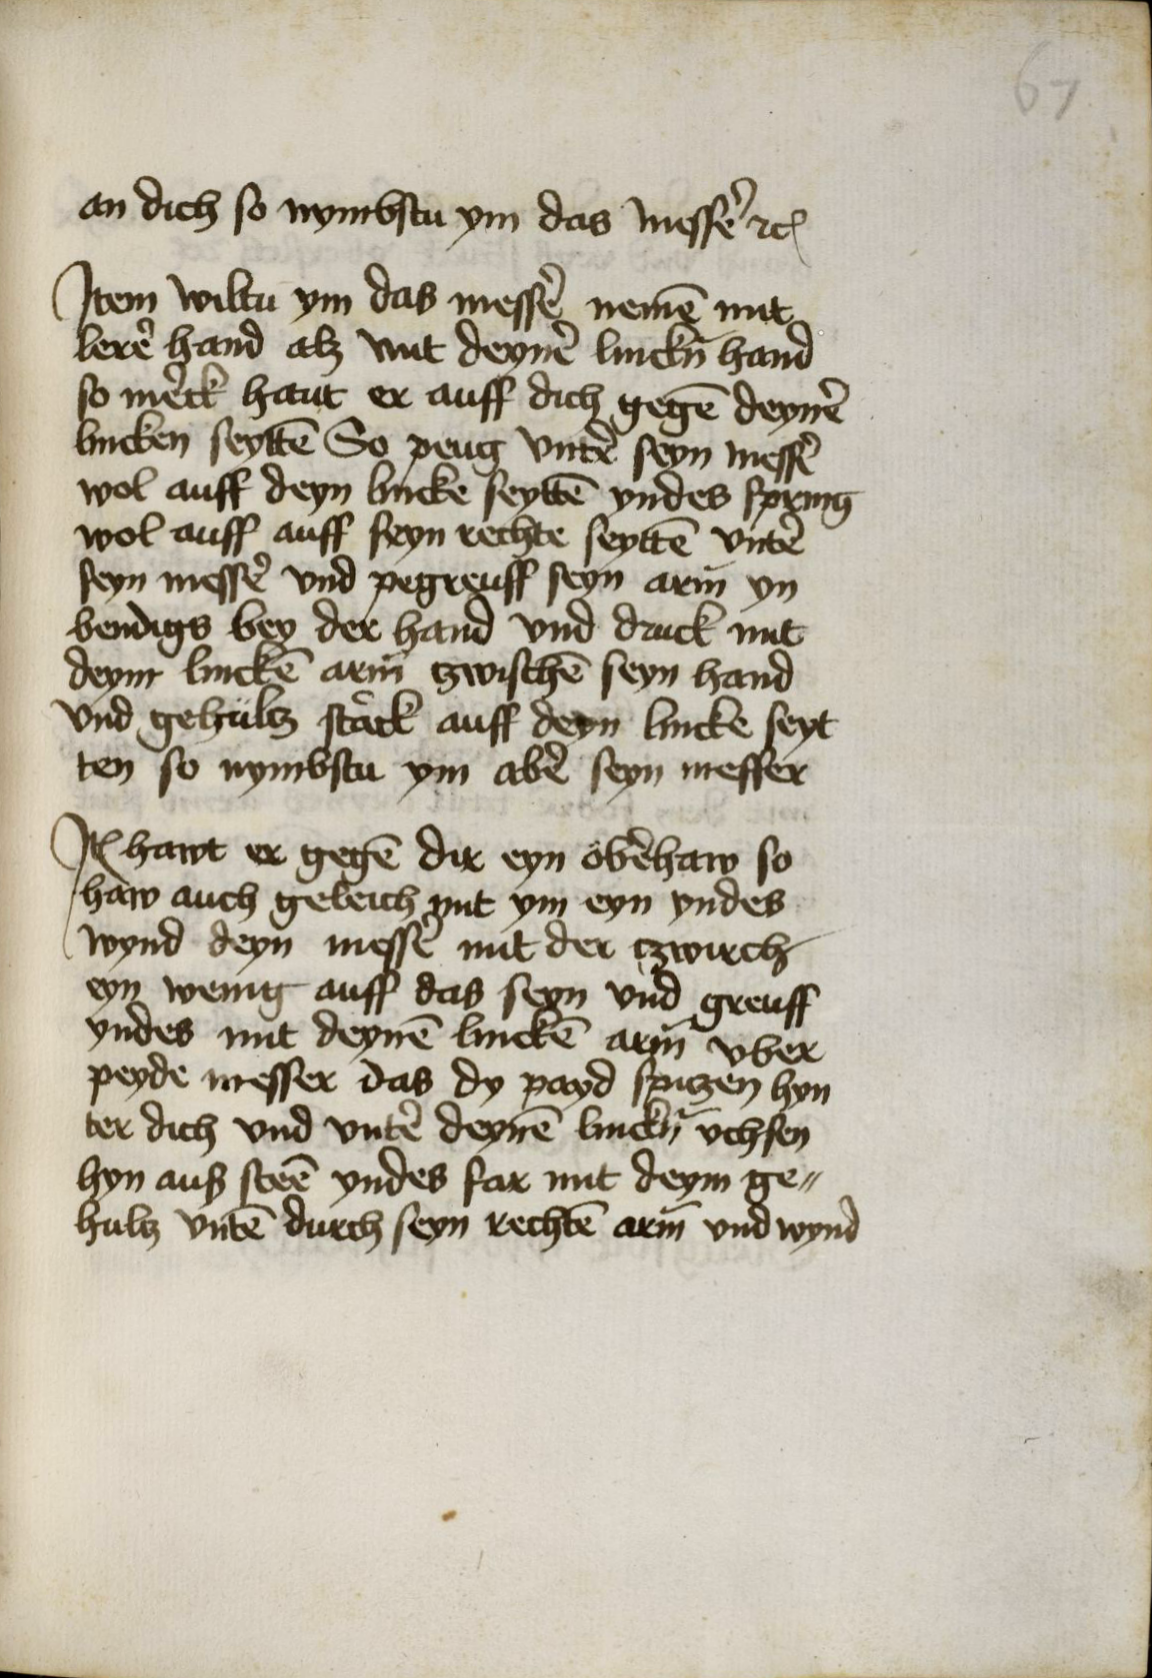 67
an dich so nymbstu ym das messer̉ ⁊c̃
Item wiltu ym das messer̉ nemē mit
lerer̉ hand alz mit deyner̉ linckn̄ hand
so mer̉ck haut er auff dich gegē deyner̉
lincken seyttē So peug vnter̉ seyn messer̉
wol auff deyn lincke seyttē yndes spring
wol auff auff seyn rechte seyttē vnter̉
seyn messer̉ vnd pegreuff seyn arm̄ yn
bendigs bey der hand vnd druck mit
deym linckē arm̄ tzwischē seyn hand
vnd gehültz starck auff deyn lincke seyt
ten so nymbstu ym aber̉ seyn messer
It̃ hawt er gegē dir eyn öber̉haw so
haw auch geleich mit ym eyn yndes
wynd deyn messer̉ mit der tzwirch
eyn wenig auff das seyn vnd greuff
yndes mit deynē linckē arm̄ vber
peyde messer das dy payd spitzen hyn
ter dich vnd vnter̉ deynē linckn̄ vchsen
hyn auß steē yndes far mit deym ge〃
hultz vntē durch seyn rechtē arm̄ vnd wynd